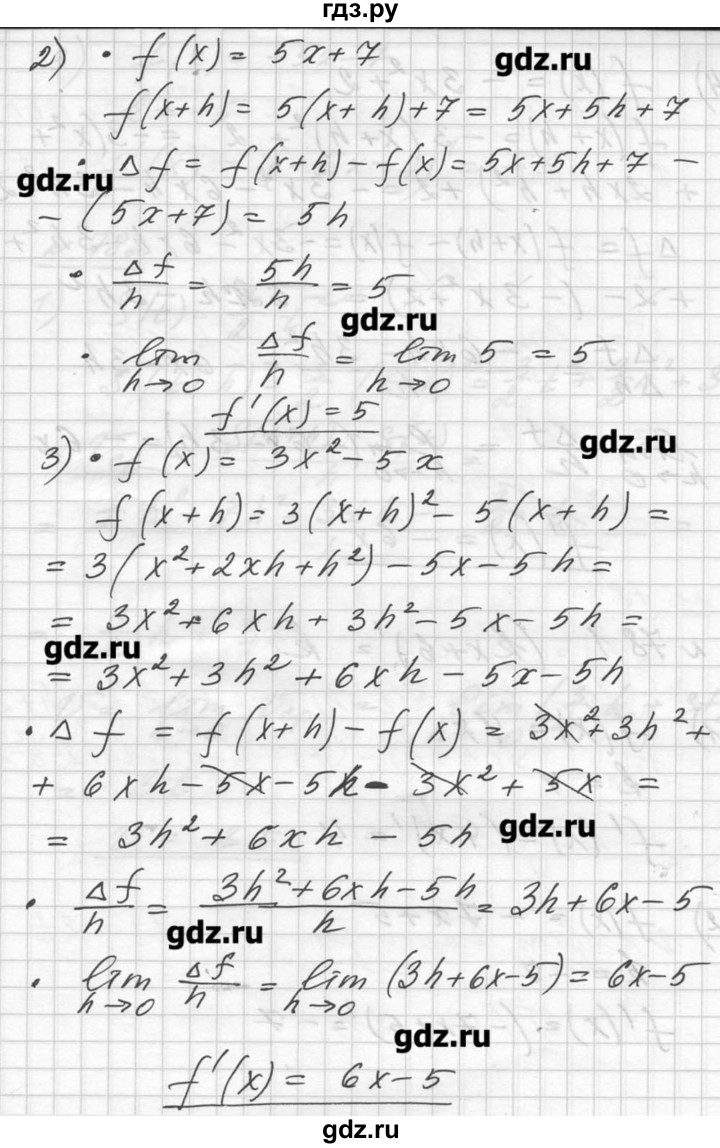 гдз.ру
2) • f(x) = 5x+7
gdz.ru
f(x+h) = 5(x+h)+7 = 5x+5h+7
• Δf = f(x+h) – f(x) = 5x+5h+7 –
gdz.ru
– (5x+7) = 5h
• Δf/h = 5h/h = 5
gdz.ru
• lim h→0 Δf/h = lim h→0 5 = 5
f'(x) = 5
gdz.ru
3) • f(x) = 3x² – 5x
f(x+h) = 3(x+h)² – 5(x+h) =
= 3(x²+2xh+h²) – 5x – 5h =
= 3x² + 6xh + 3h² – 5x – 5h =
gdz.ru
= 3x² + 3h² + 6xh – 5x – 5h
• Δf = f(x+h) – f(x) = 3x² + 3h² +
+ 6xh – 5x – 5h – 3x² + 5x =
= 3h² + 6xh – 5h
gdz.ru
• Δf/h = (3h² + 6xh – 5h)/h = 3h + 6x – 5
gdz.ru
• lim h→0 Δf/h = lim h→0 (3h+6x–5) = 6x–5
gdz.ru
f'(x) = 6x – 5
gdz.ru